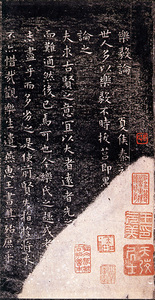 樂毅論 夏侯泰
世人多以樂毅不時拔莒即墨
論之
夫求古賢之意宜以大者遠者先
而難通然後已焉可也今樂氏之趣或者
未盡乎而多劣之是使前賢失指於將來
不亦惜哉觀樂生遺燕惠王書其殆庶乎